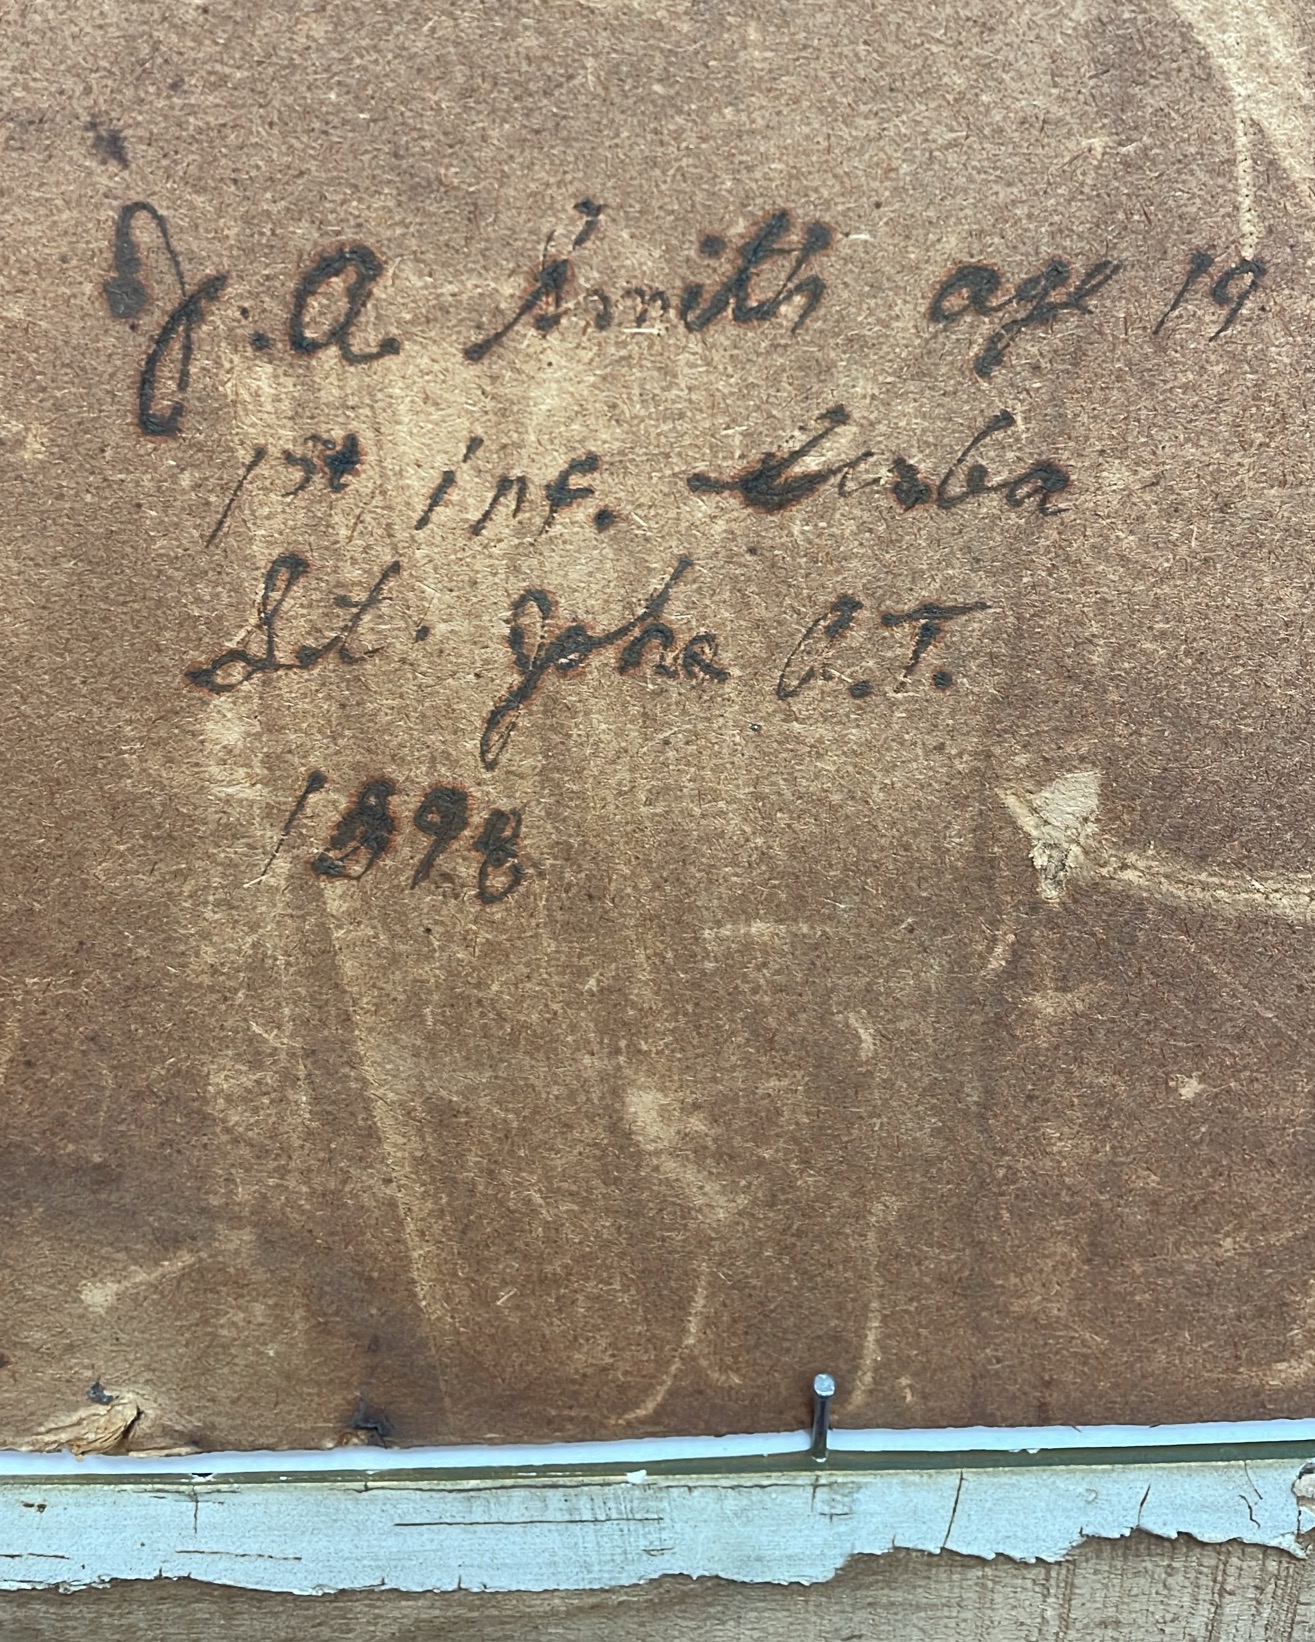 J. A Smith age 19
1st inf.
St. John C.T.
1898